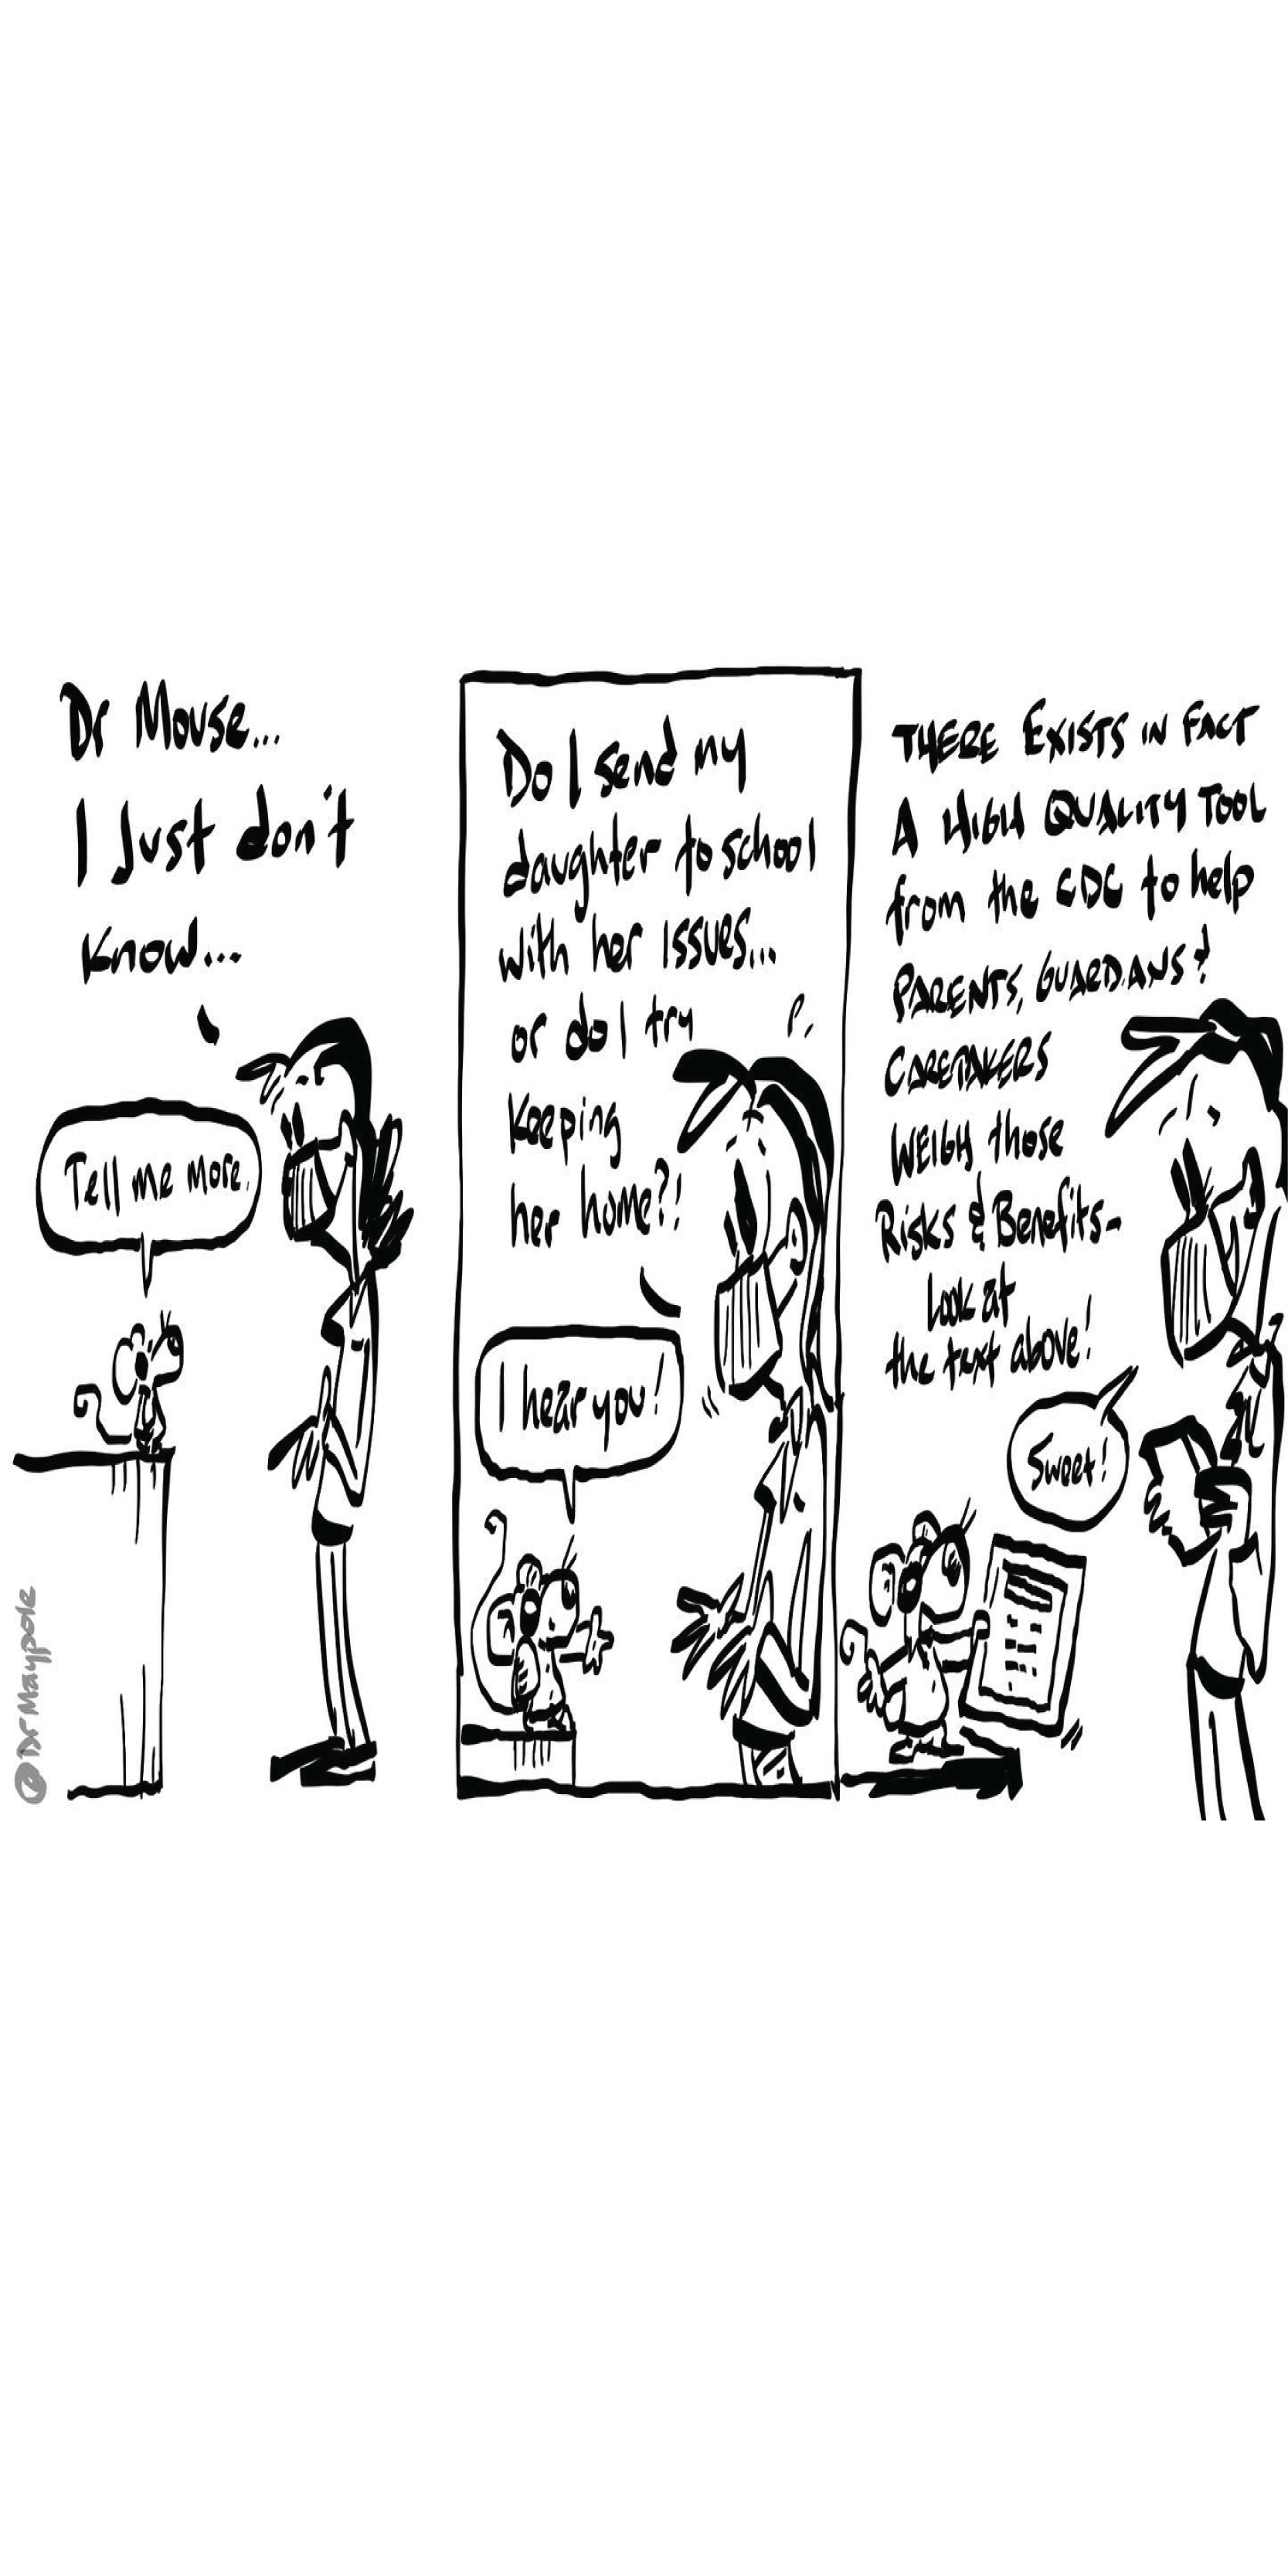 Dr Mouse...
I Just don't
Know...
Tell me more.
Do I send my
daughter to school
with her issues...
or do I try
Keeping
her home?!
I hear you!
THERE EXISTS IN FACT
A HIGH QUALITY TOOL
from the CDC to help
PARENTS, GUARDIANS &
CARETAKERS
WEIGH those
Risks & Benefits-
Look at
the text above!
Sweet!
@DrMaypole